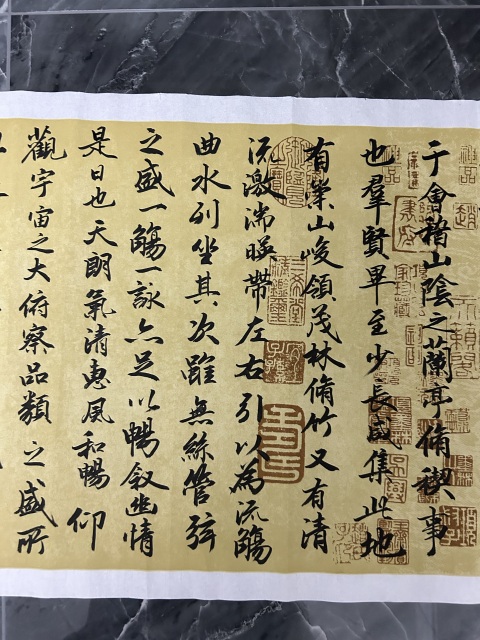 于會稽山陰之蘭亭脩禊事
也羣賢畢至少長咸集此地
有崇山峻領茂林脩竹又有清
流激湍暎帶左右引以為流觴
曲水列坐其次雖無絲竹管弦
之盛一觴一詠亦足以暢敘幽情
是日也天朗氣清惠風和暢仰
觀宇宙之大俯察品類之盛所